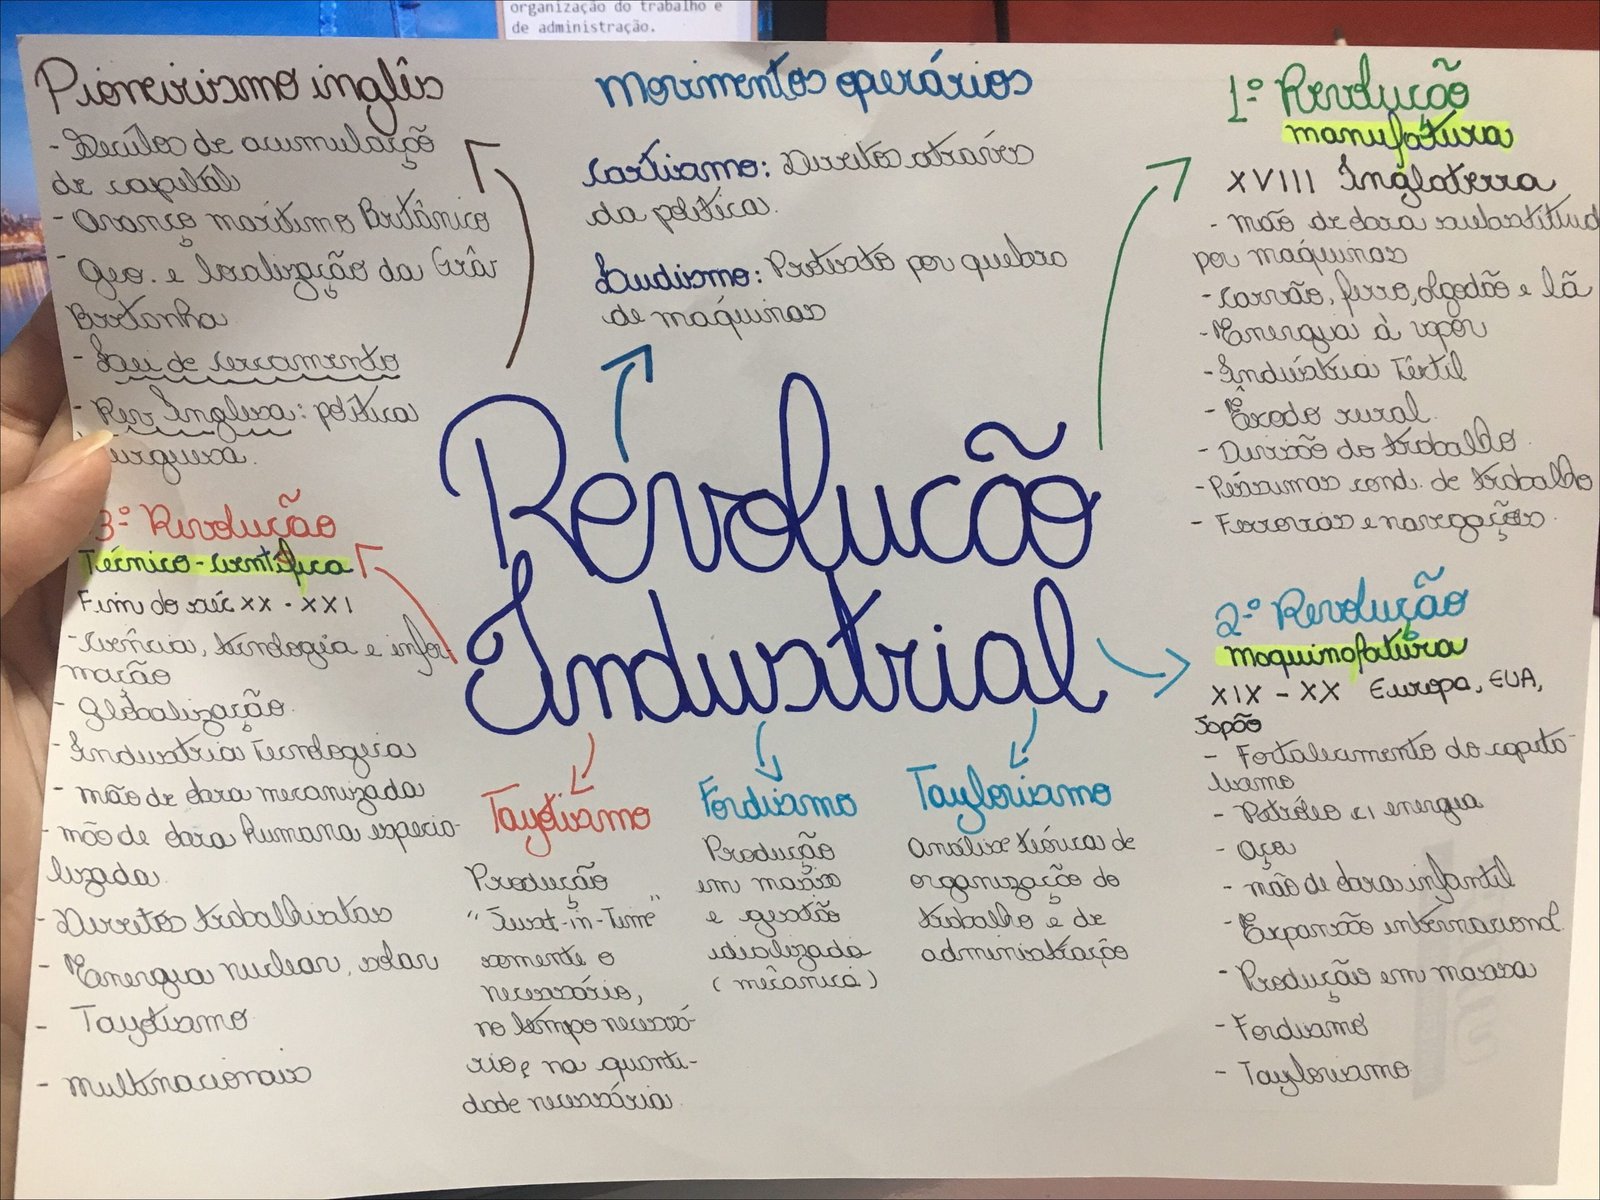 organização do trabalho e
de administração.
Pioneirismo inglês
- Séculos de acumulaçõ
de capital
- Avanço marítimo Britânico
- Geo. e localização da Grã
Bretanha
- Lei de cercamento
- Rev Inglesa: política
urguesa.
Movimentos operários
Cartismo: Direitos através
da política.
Ludismo: Protesto por quebra
de máquinas
1º Revolução
manufatura
XVIII Inglaterra
- mão de obra substituid
por máquinas
- Carvão, ferro, algodão e lã
- Energia à vapor
- Indústria Têxtil
- Êxodo rural.
- Divisão do trabalho.
- Péssimas cond. de trabalho
- Ferrovias e navegações.
Revolução
Industrial
3º Revolução
Técnico-científica
Fim do séc XX - XXI
- Ciência, tecnologia e infor-
mação
- Globalização.
- Industria Tecnologica
- mão de obra mecanizada
- mão de obra humana especia-
lizada.
- Direitos trabalhistas
- Energia nuclear, solar
- Tayotismo
- Multinacionais
2º Revolução
maquinofatura
XIX - XX Europa, EUA,
Japão
- Fortalecimento do capita-
lismo
- Petróleo c/ energia
- Aço
- mão de obra infantil
- Expansão internacional.
- Produção em massa
- Fordismo
- Taylorismo
Tayotismo
Produção
"Just-in-Time"
somente o
necessário,
no tempo necessá-
rio e na quanti-
dade necessária.
Fordismo
Produção
em massa
e gestão
idealizada
(mecânica)
Taylorismo
Análise teórica de
organização do
trabalho e de
administração